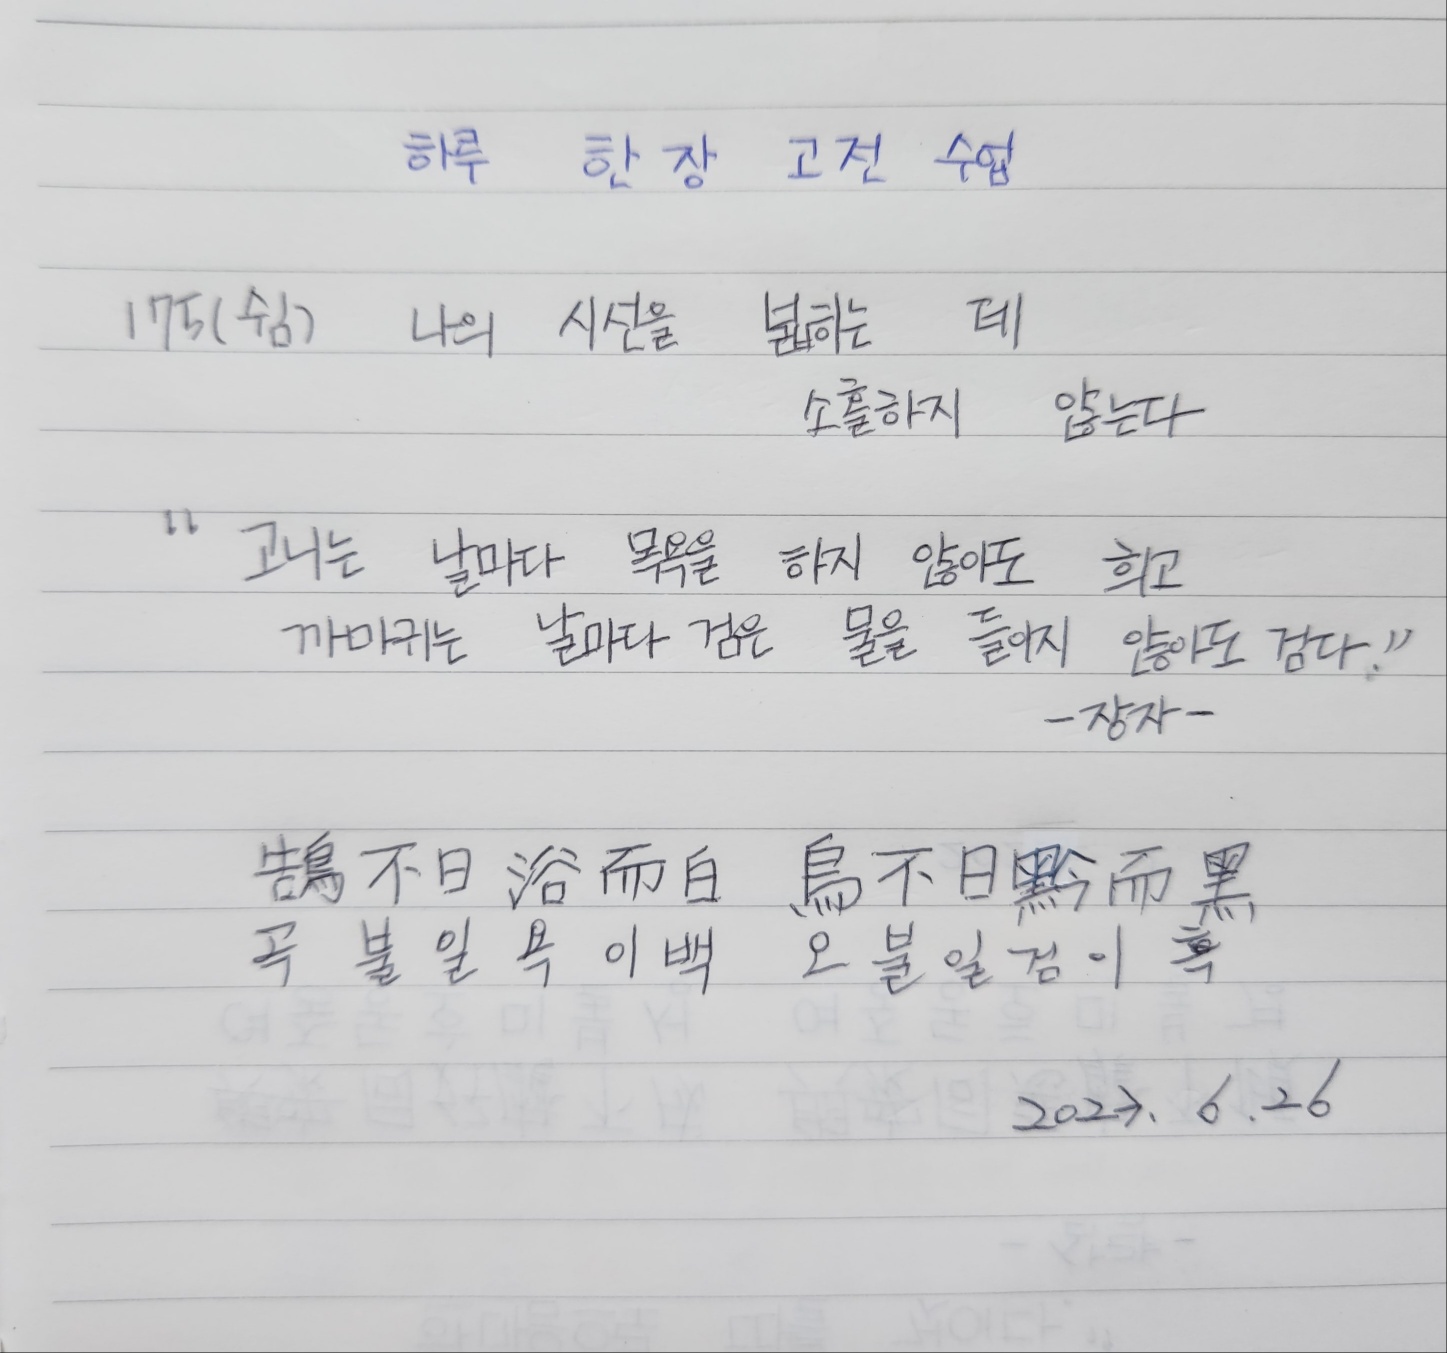 하루 한 장 고전 수업
175(쉼) 나의 시선을 넓히는 데
소홀하지 않는다
"고니는 날마다 목욕을 하지 않아도 희고
까마귀는 날마다 검은 물을 들이지 않아도 검다."
-장자-
鵠不日浴而白 烏不日黔而黑
곡불일욕이백 오불일검이흑
2023. 6. 26